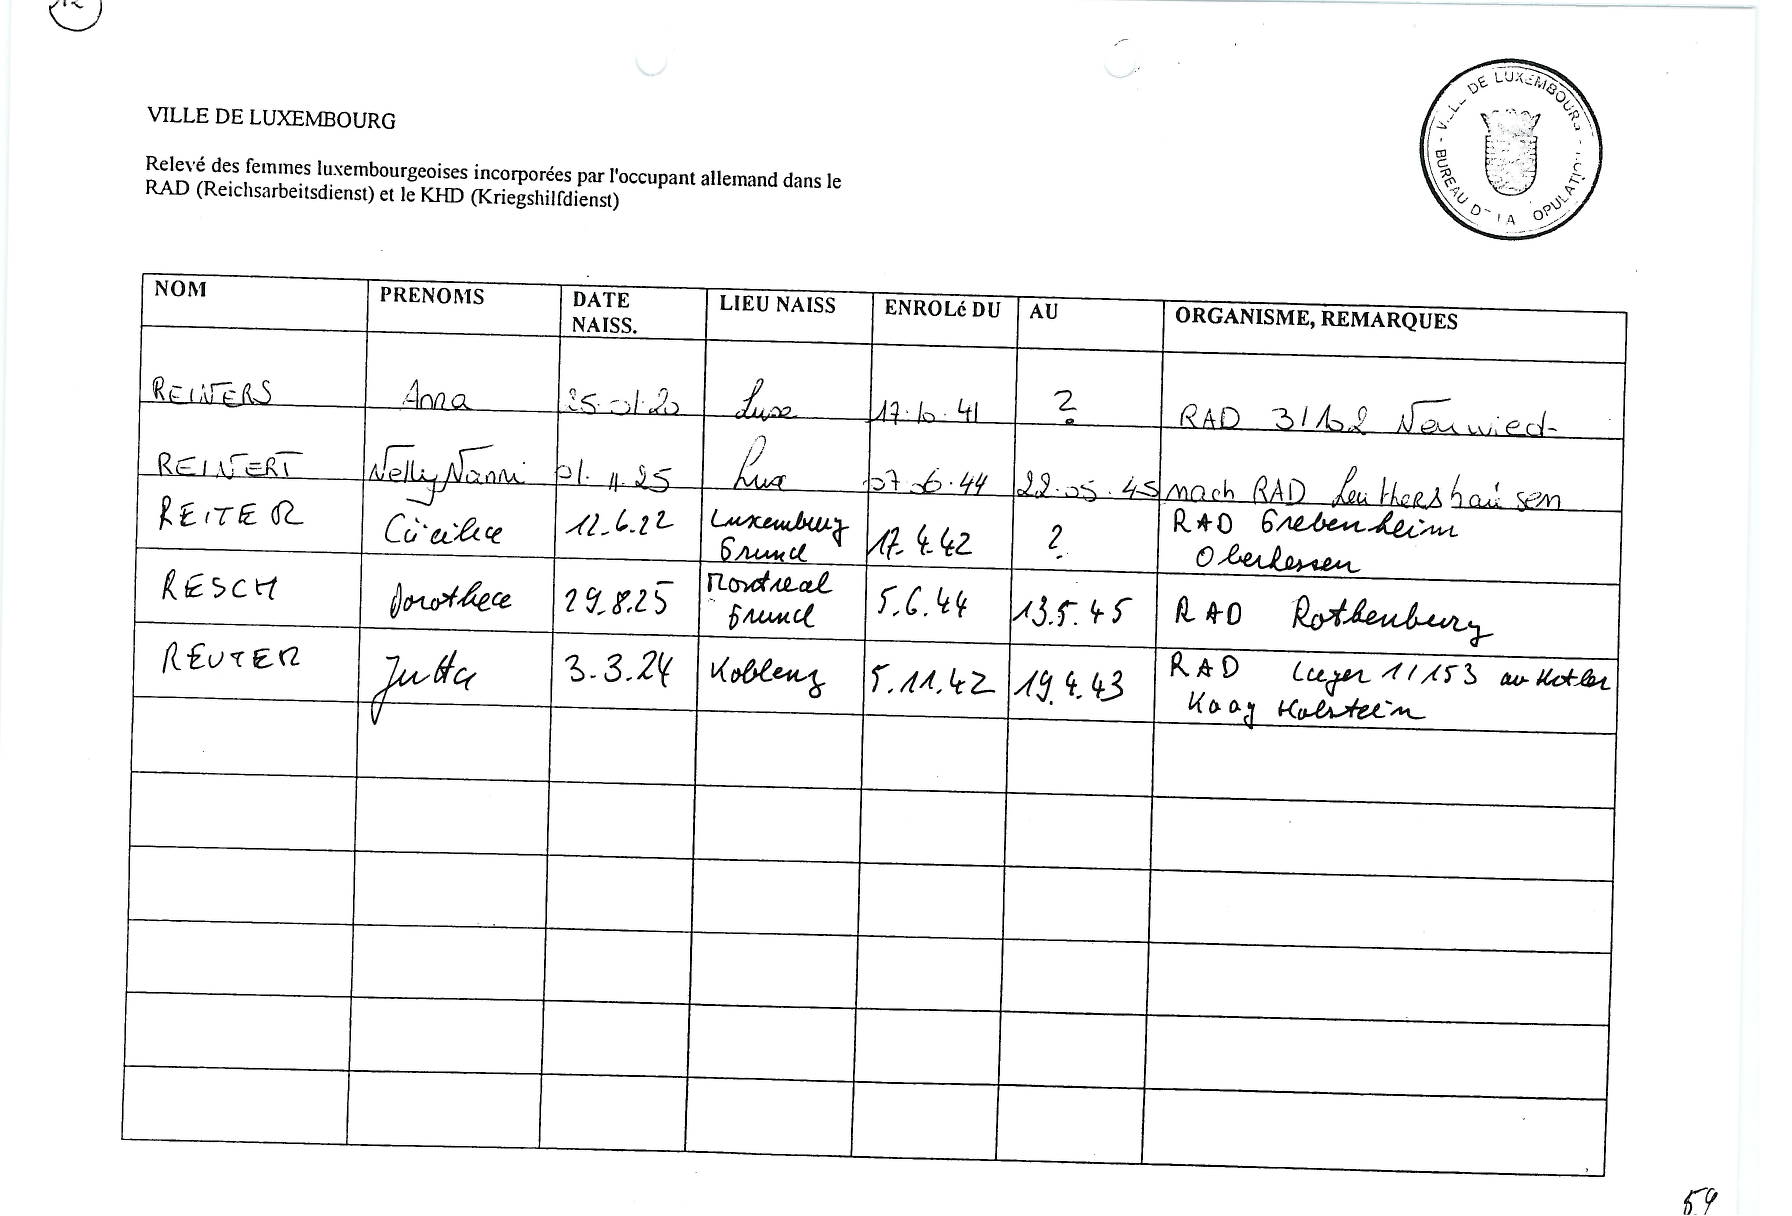 VILLE DE LUXEMBOURG
Relevé des femmes luxembourgeoises incorporées par l'occupant allemand dans le
RAD (Reichsarbeitsdienst) et le KHD (Kriegshilfdienst)
VILLE DE LUXEMBOURG - BUREAU DE LA POPULATION
NOM PRENOMS DATE NAISS. LIEU NAISS ENROLé DU AU ORGANISME, REMARQUES
REINERS Anna 25.01.20 Luxe 17.10.41 ? RAD 3/102 Neuwied-
REINERT Nelly Nanni 01.11.25 Lux 07.06.44 22.05.45 nach RAD Leuthershausen
REITER Cäcilia 12.6.22 Luxemburg Grund 17.4.42 ? RAD Grebenheim Oberhessen
RESCH Dorothea 29.8.25 Montreal Grund 5.6.44 13.5.45 RAD Rothenburg
REUTER Jutta 3.3.24 Koblenz 5.11.42 19.4.43 RAD Lager 11/153 Kaag Holstein
59